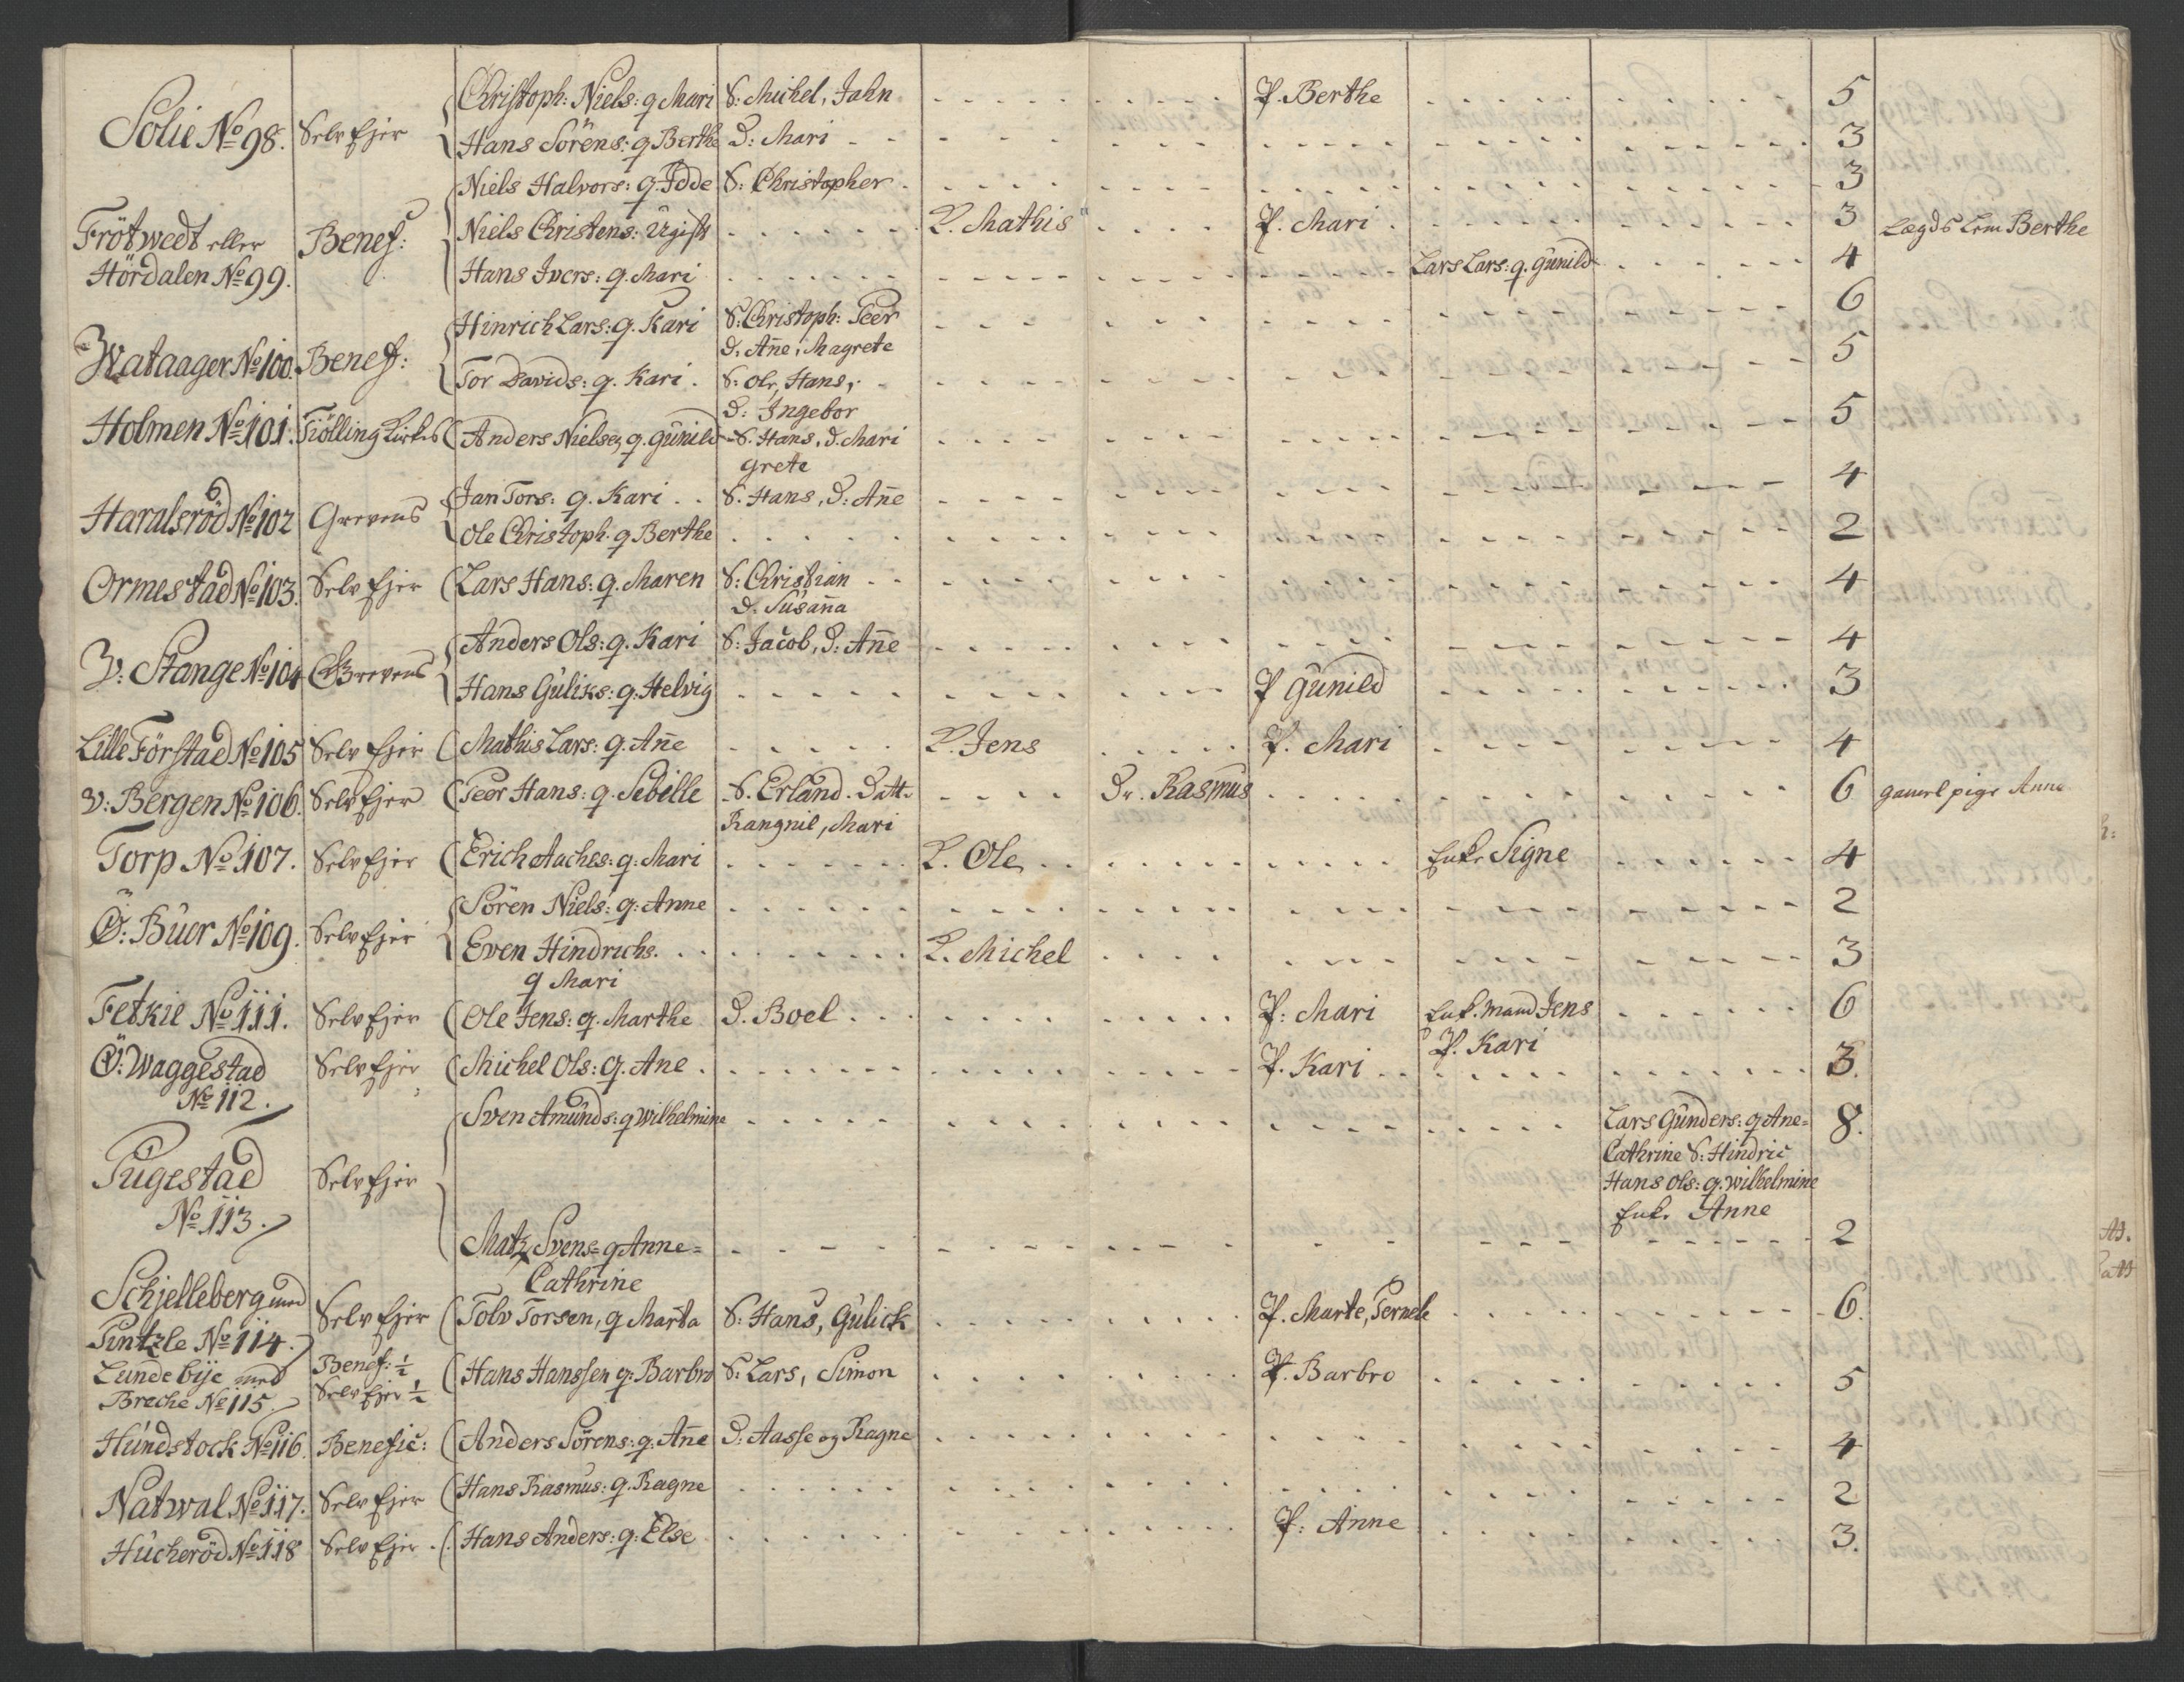 Solie No 98. Selv Ejer Christoph: Niels: g Mari S: Michel, Jahn P. Berthe 5
Hans Sörens: g Berthe D: Mari 3
Niels Halvors: g. Idde S: Christopher 3
Frötwedt eller Benef: Niels Christens: Ugift K. Mathis P. Mari 3 Lægds Lem Berthe
Hördalen No 99. Hans Ivers: g. Mari Lars Lars: g. Gunild 4
Hinrich Lars: g. Kari S: Christoph: Peer 6
D: Añe, Magrete
Wataager No 100. Benef: Tor Davids: g. Kari S: Ole, Hans, 5
D: Ingebor
Holmen No 101. Tiölling Kirkes Anders Nielsen g. Gunild S. Hans, D. Mari 5
Grete
Haralsröd No 102 Grevens Jan Tors: g. Kari S. Hans, D: Añe 4
Ole Christoph: g Berthe 2
Ormestad No 103. Selv Ejer Lars Hans: g. Maren S: Christian 4
D. Susaña
W: Stange No 104 Grevens Anders Ols: g. Kari S: Jacob, D: Añe 4
Hans Guliks: g: Helvig P Gunild 3
Lille Förstad No 105 Selv Ejer Mathis Lars: g. Añe K. Jens P. Mari 4
W: Bergen No 106. Selv Ejer Peer Hans: g. Sebille S. Erland. Datt. Dr. Rasmus 6 pige Anne
Rangnil, Mari
Torp No 107. Selv Ejer Erich Aaches: g: Mari K. Ole Enke Signe 4
Ö: Buer No 109. Selv Ejer Sören Niels: g: Anne 2
Even Hindrichs. K. Michel 3
g Mari
Fetkie No 111. Selv Ejer Ole Jens: g. Marthe D. Boel P: Mari Enk. mand Jens 6
P. Kari
Ö: Waggestad Selv Ejer Michel Ols: g. Ane P. Kari 3.
No 112.
Sven Amunds: g Wilhelmine Lars Gunders: g Ane= 8.
Cathrine S: Hindric
Pugestad Selv Ejer Hans Ols: g. Wilhelmine
No 113. Enke Anne
Matz Svens= g Anne= 2
Cathrine
Schjelleberg med Selv Ejer Tolv Torsen, g Marta S: Hans, Gulick P. Marte, Pernele 6.
Pintzle No 114.
Lundebije med Benef: ½ Hans Hanssen g: Barbro S: Lars, Simon P. Barbro 5
Breche No 115. Selv Ejer ½
Hundstock No 116. Benefic: Anders Sörens: g: Añe D: Aasse og Ragne 4
Natwal No 117. Selv Ejer Hans Rasmus: g. Ragne 2
Hucheröd No 118 Selv Ejer Hans Anders: g: Else P: Anne 3.